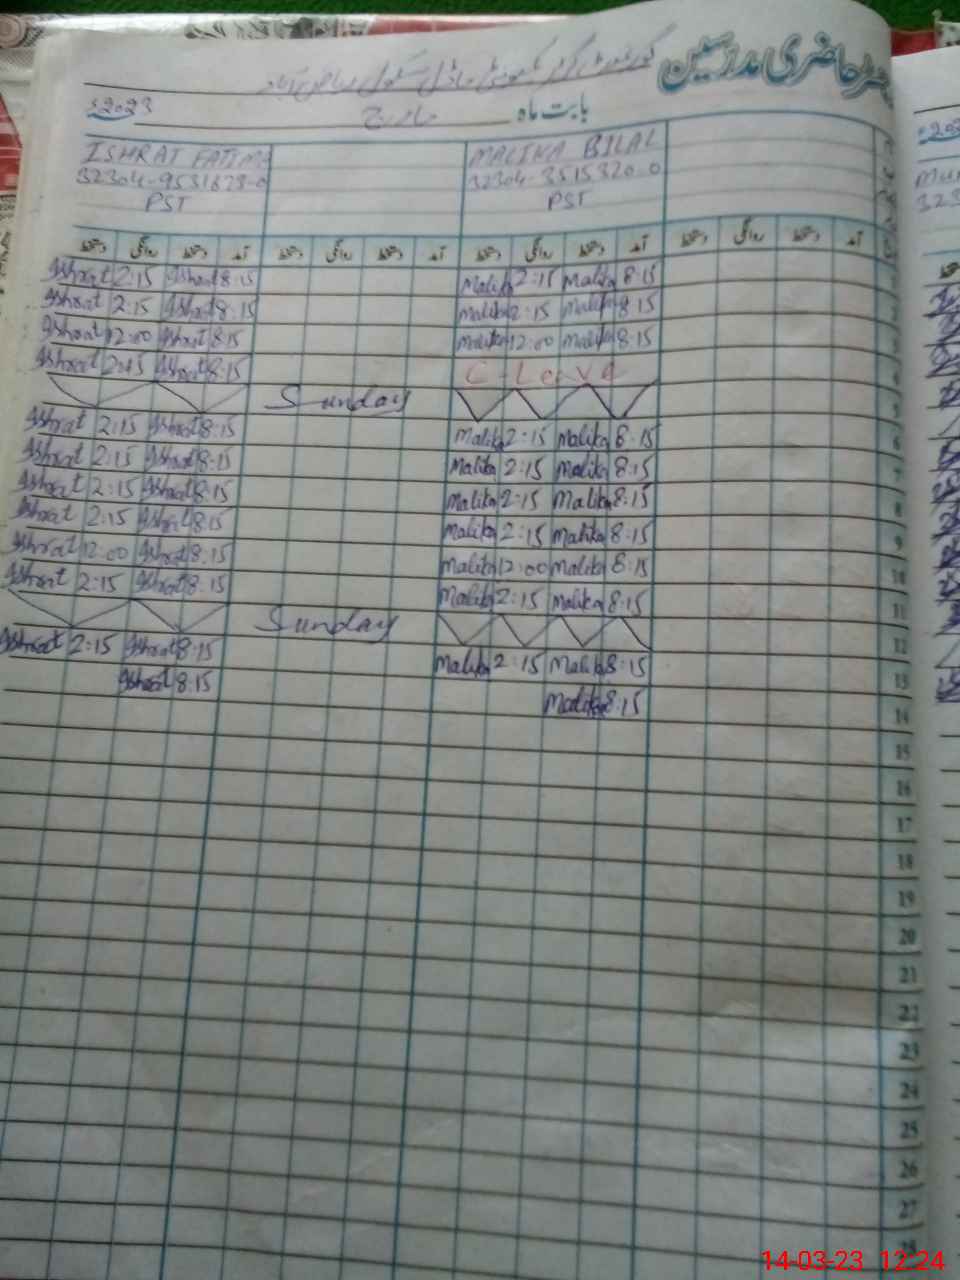 رجسٹر حاضری مدرسین
گورنمنٹ گرلز کمیونٹی ماڈل سکول ریاض آباد
بابت ماہ مارچ 2023ء
MALIKA BILAL ISHRAT FATIMA
32304-3515320-0 32304-9531628-0
PST PST
آمد دستخط روانگی دستخط آمد دستخط روانگی دستخط آمد دستخط روانگی دستخط آمد دستخط روانگی دستخط
Ishrat 2:15 Ishrat 8:15 Malika 2:15 Malika 8:15 1
Ishrat 2:15 Ishrat 8:15 Malika 2:15 Malika 8:15 2
Ishrat 12:00 Ishrat 8:15 Malika 12:00 Malika 8:15 3
Ishrat 2:15 Ishrat 8:15 C-Leave 4
Sunday 5
Ishrat 2:15 Ishrat 8:15 Malika 2:15 Malika 8:15 6
Ishrat 2:15 Ishrat 8:15 Malika 2:15 Malika 8:15 7
Ishrat 2:15 Ishrat 8:15 Malika 2:15 Malika 8:15 8
Ishrat 2:15 Ishrat 8:15 Malika 2:15 Malika 8:15 9
Ishrat 12:00 Ishrat 8:15 Malika 12:00 Malika 8:15 10
Ishrat 2:15 Ishrat 8:15 Malika 2:15 Malika 8:15 11
Sunday 12
Ishrat 2:15 Ishrat 8:15 Malika 2:15 Malika 8:15 13
Ishrat 8:15 Malika 8:15 14
15
16
17
18
19
20
21
22
23
24
25
26
27
28
14-03-23 12:24